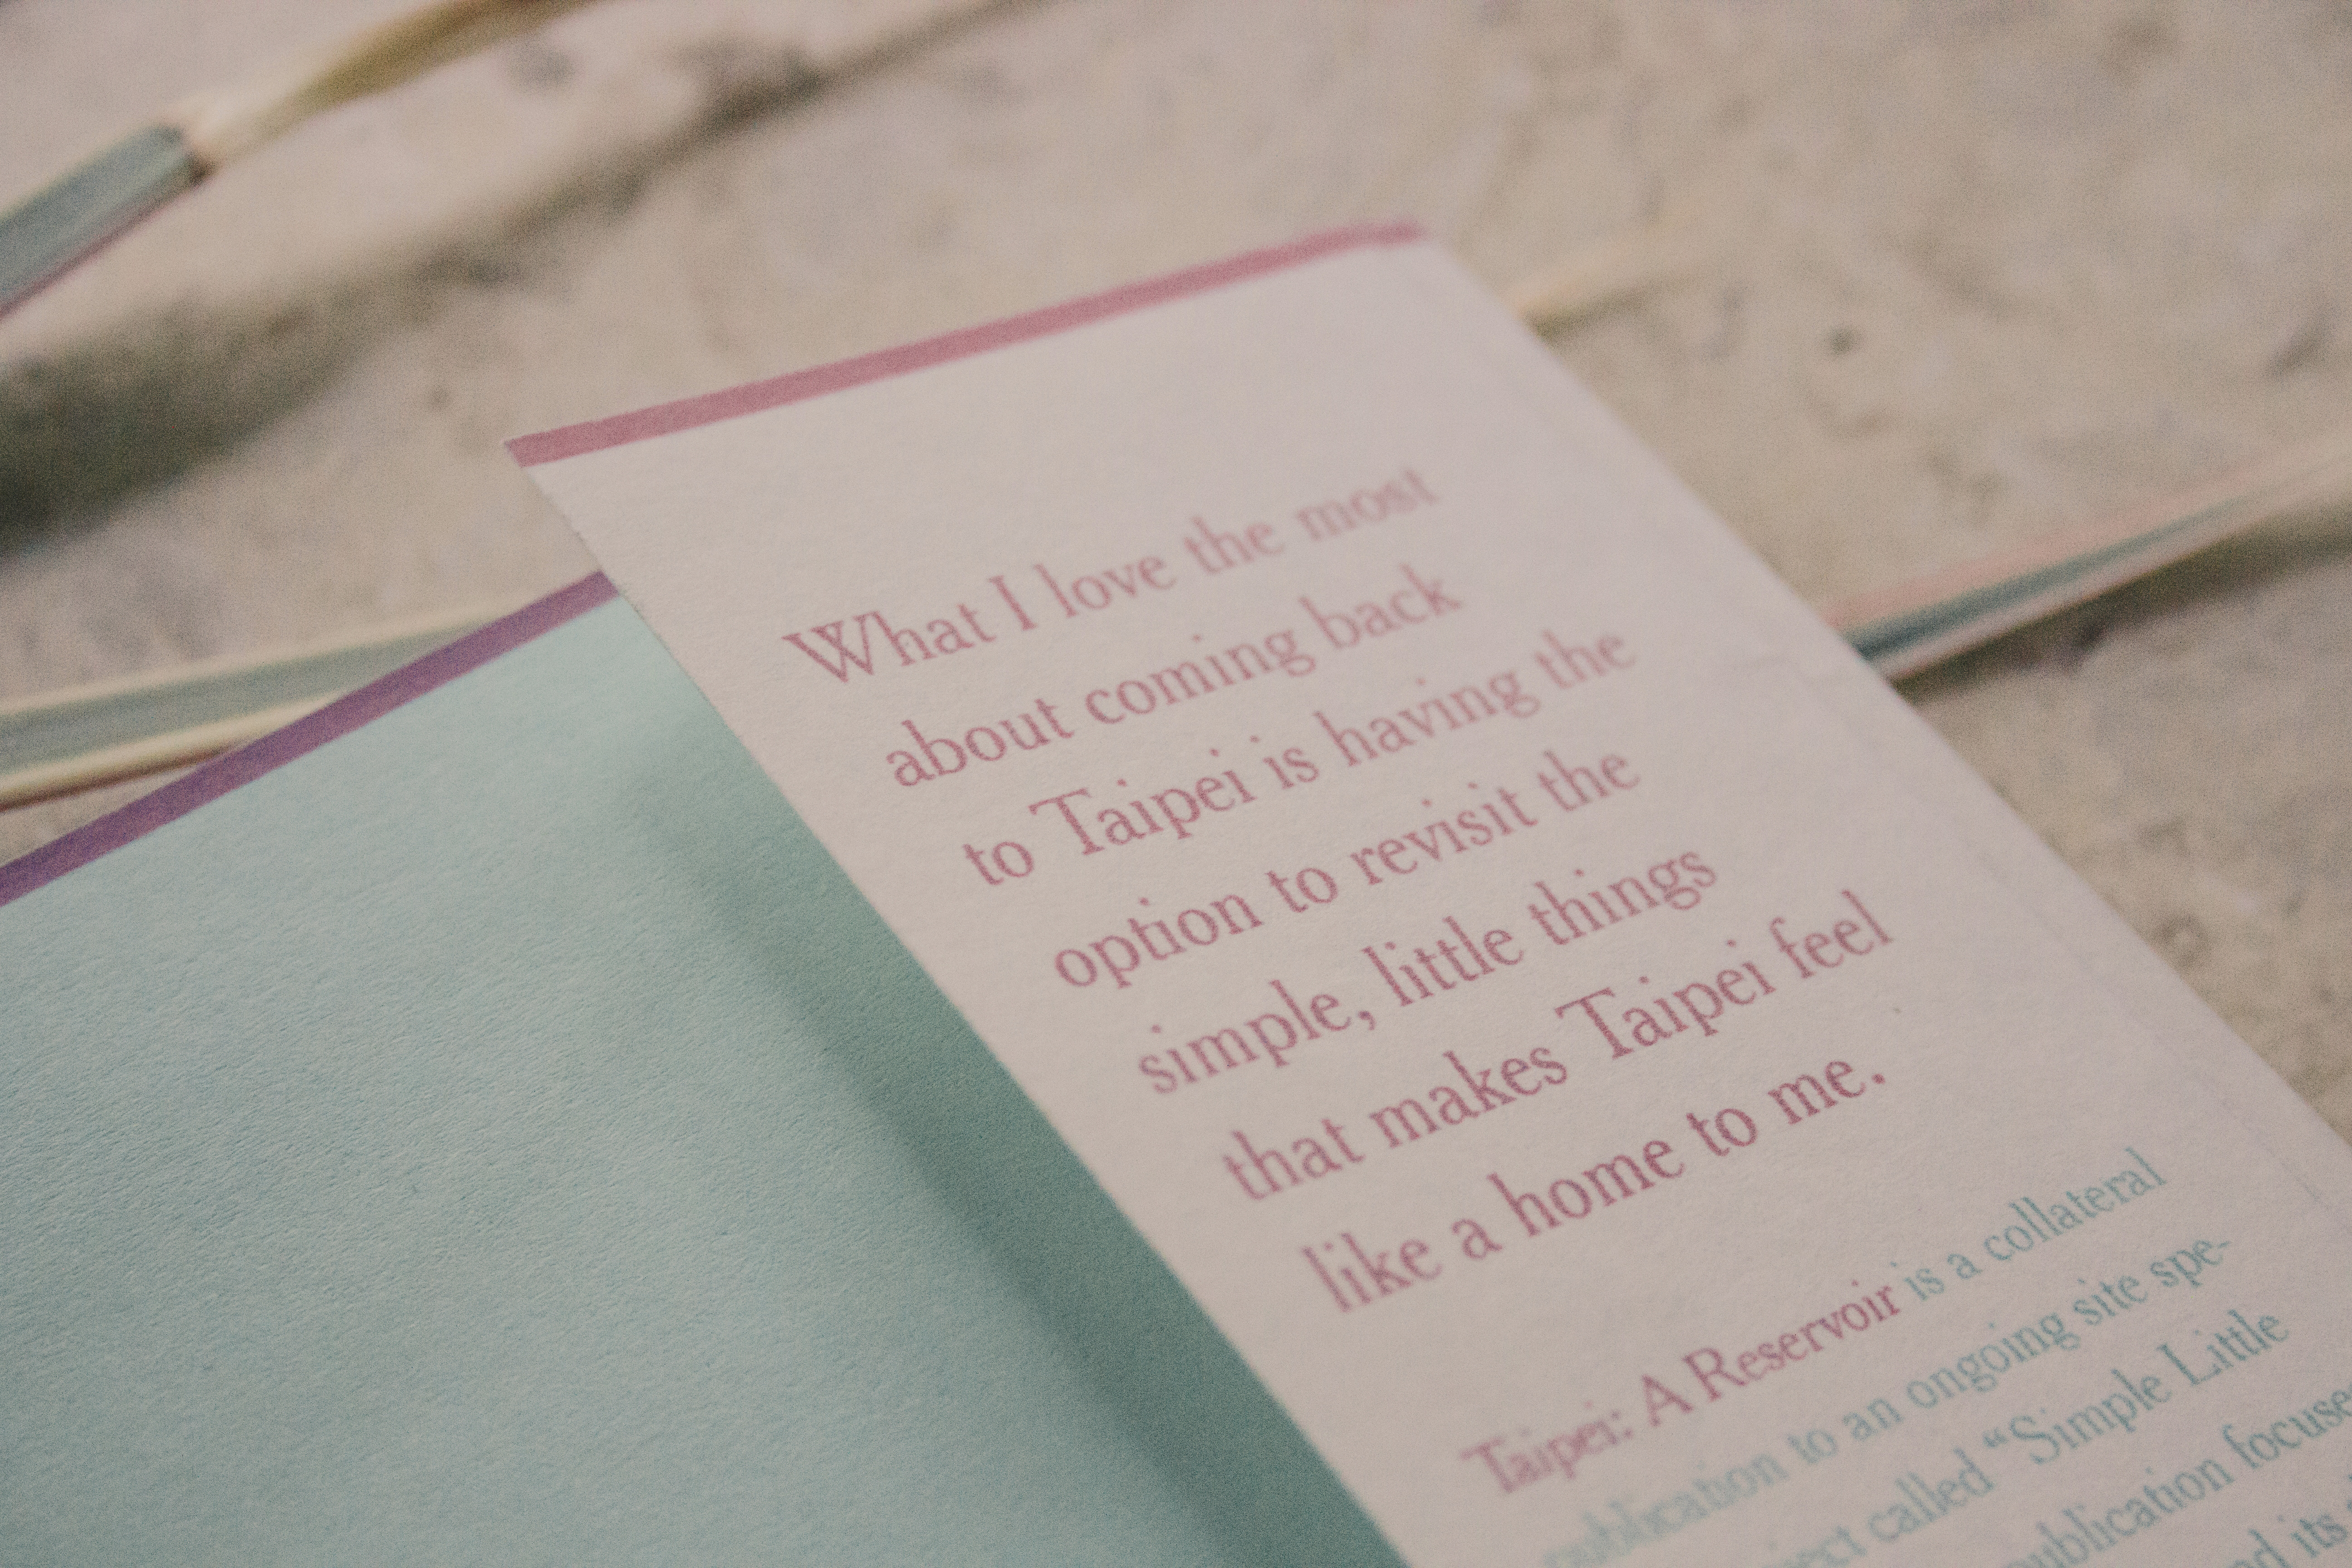 What I love the most
about coming back
to Taipei is having the
option to revisit the
simple, little things
that makes Taipei feel
like a home to me.
Taipei: A Reservoir is a collateral
publication to an ongoing site spe-
called “Simple Little
publication
its